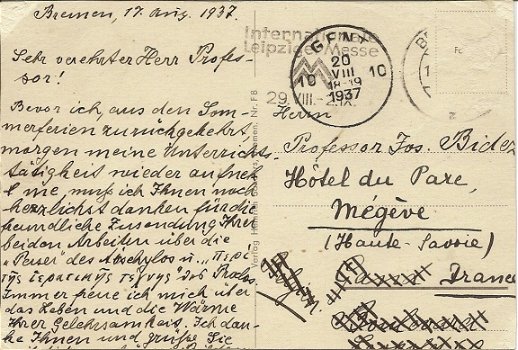 Bremen, 17. Aug. 1937.
Sehr verehrter Herr Profes-
sor!
Bevor ich, aus den Som-
merferien zurückgekehrt,
morgen meine Unterrichts-
tätigkeit wieder aufneh-
me muß ich Ihnen noch
herzlichst danken für die
freundliche Zusendung Ihrer
beiden Arbeiten über die
des Aischylos u. "Περὶ
τῆς ἱερατικῆς τέχνης" des
Immer freue ich mich über
das Leben und die Wärme
Ihrer Gelehrsamkeit. Ich dan-
ke Ihnen und grüße Sie
Verlag
Nr. F8
Internationale
Leipziger Messe
29.VIII.-2.IX.
20
VIII
18-19
1937
10
10
Herrn
Professor Jos. Bidez
Hôtel du Parc,
Mégève
(Haute-Savoie)
France
Belgien